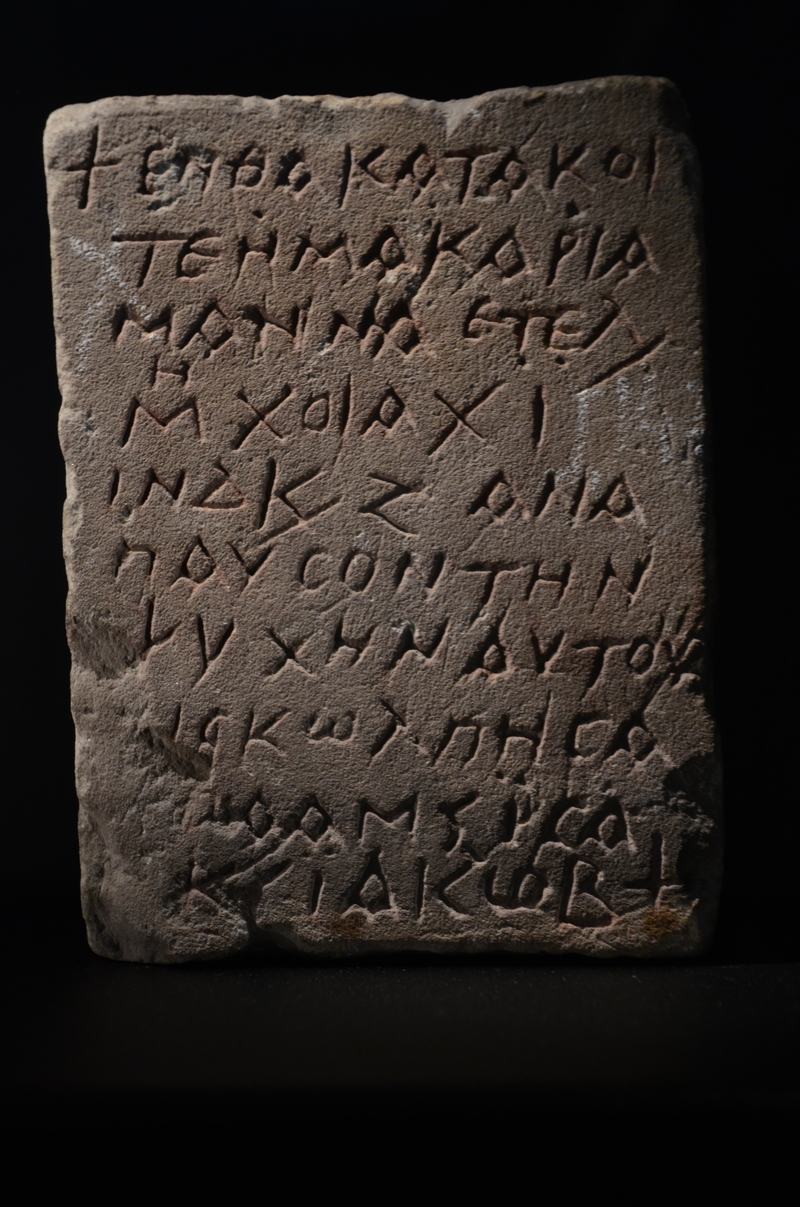 + ΕΝΘΑ ΚΑΤΑΚΟΙ
ΤΕ Η ΜΑΚΑΡΙΑ
ΜΑΝΝΑ ΕΤΕΛ
ΜΗ ΧΟΙΑΧ Ι
ΙΝΔΚ Ζ ΑΝΑ
ΠΑΥCΟΝ ΤΗΝ
ΨΥΧΗΝ ΑΥΤΟΥ
ΙC ΚωΛΠΗC Α
ΒΡΑΑΜ Ϛ ΙCΑ
Κ Ϛ ΙΑΚωΒ +